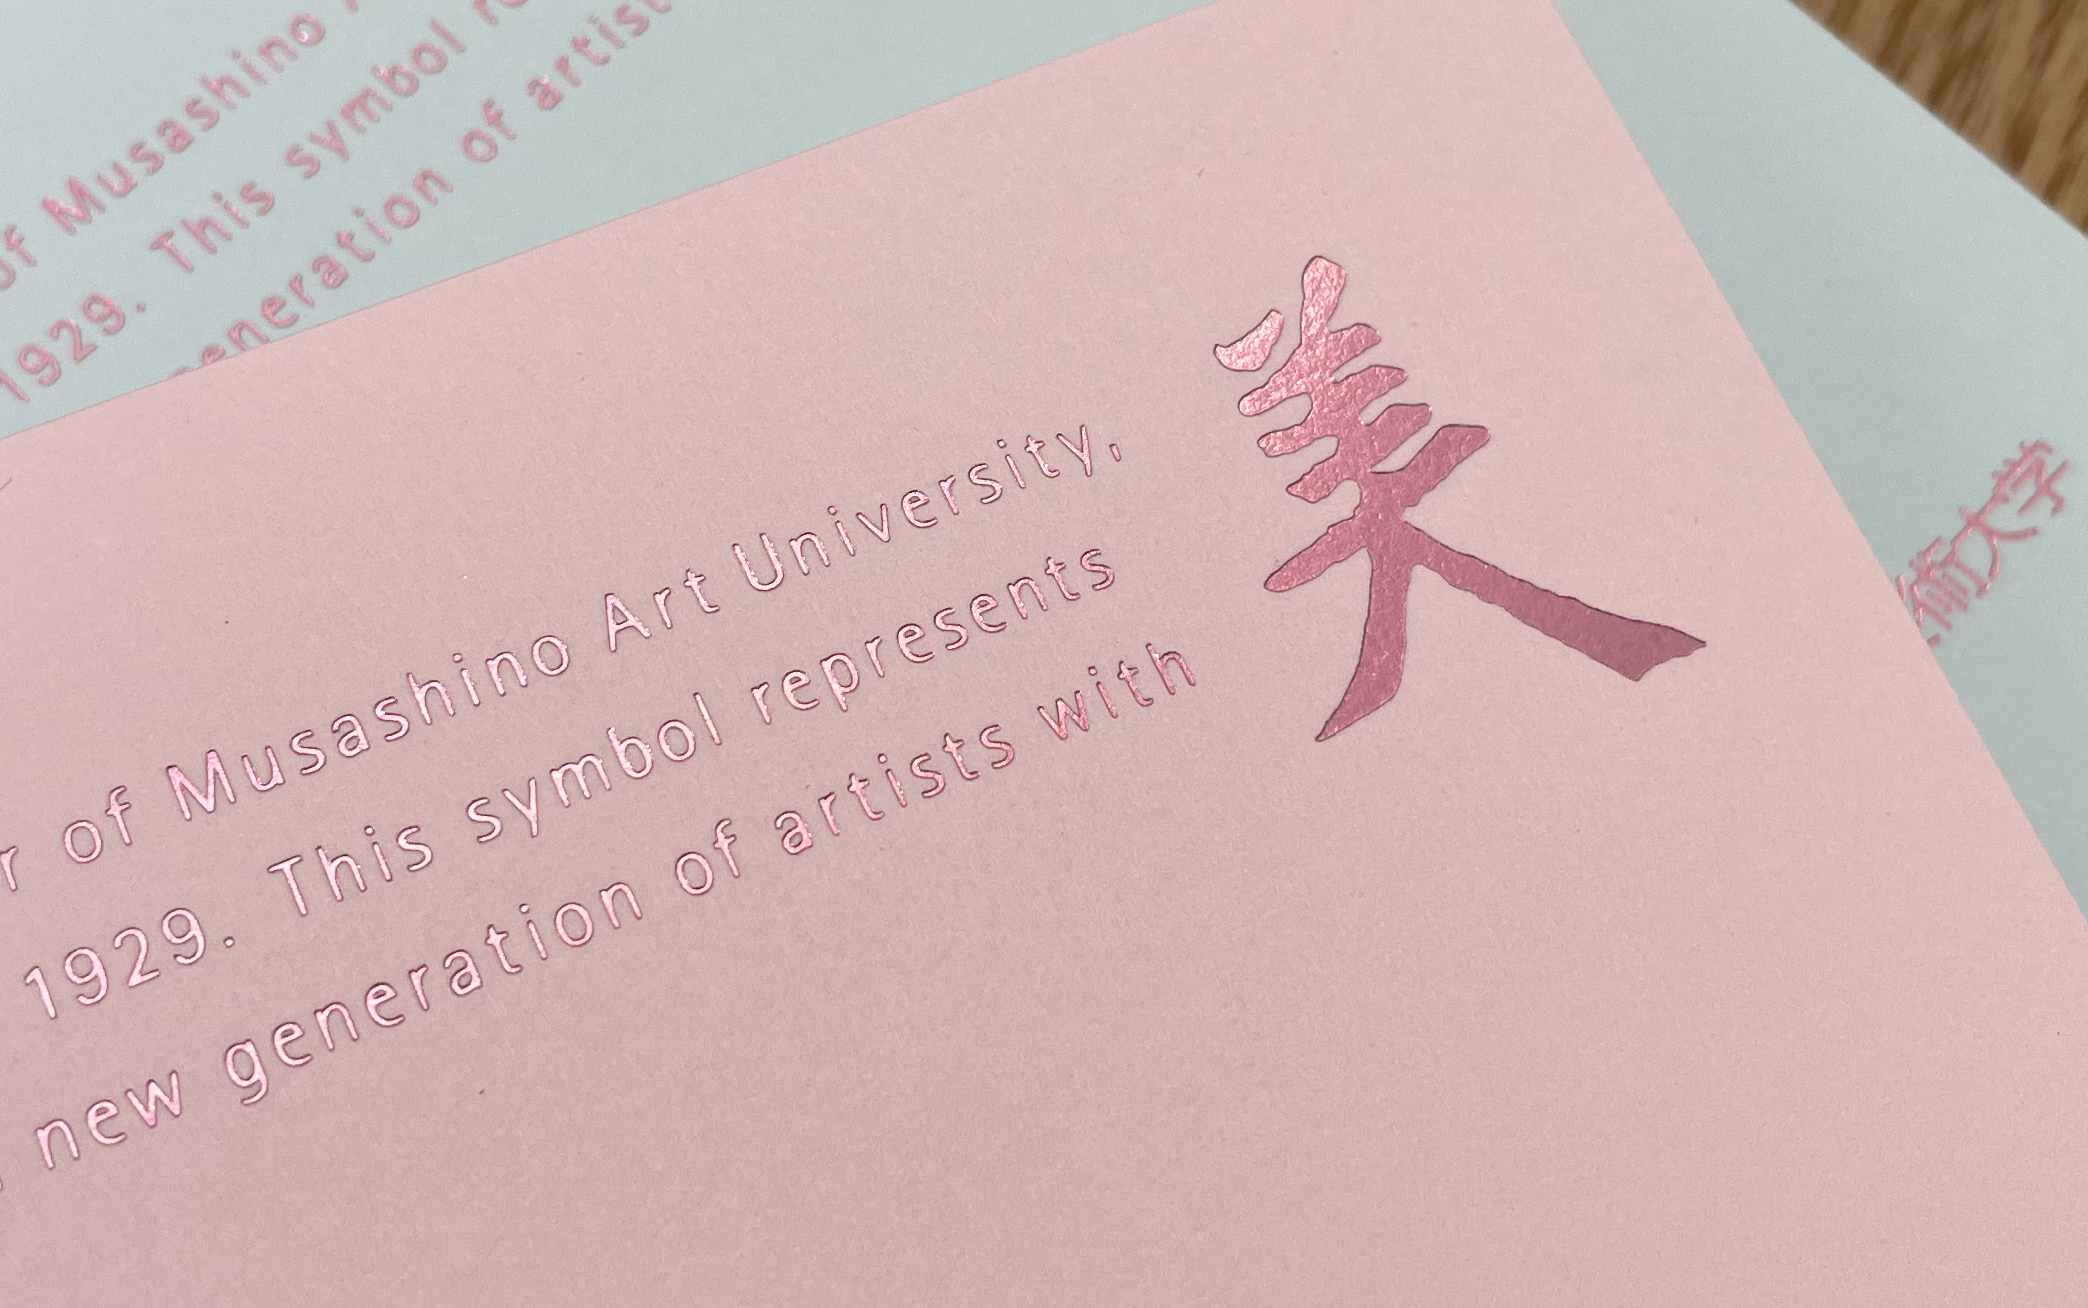 of Musashino
1929. This symbol
generation of artist
r of Musashino Art University,
1929. This symbol represents
new generation of artists with
美
術大学